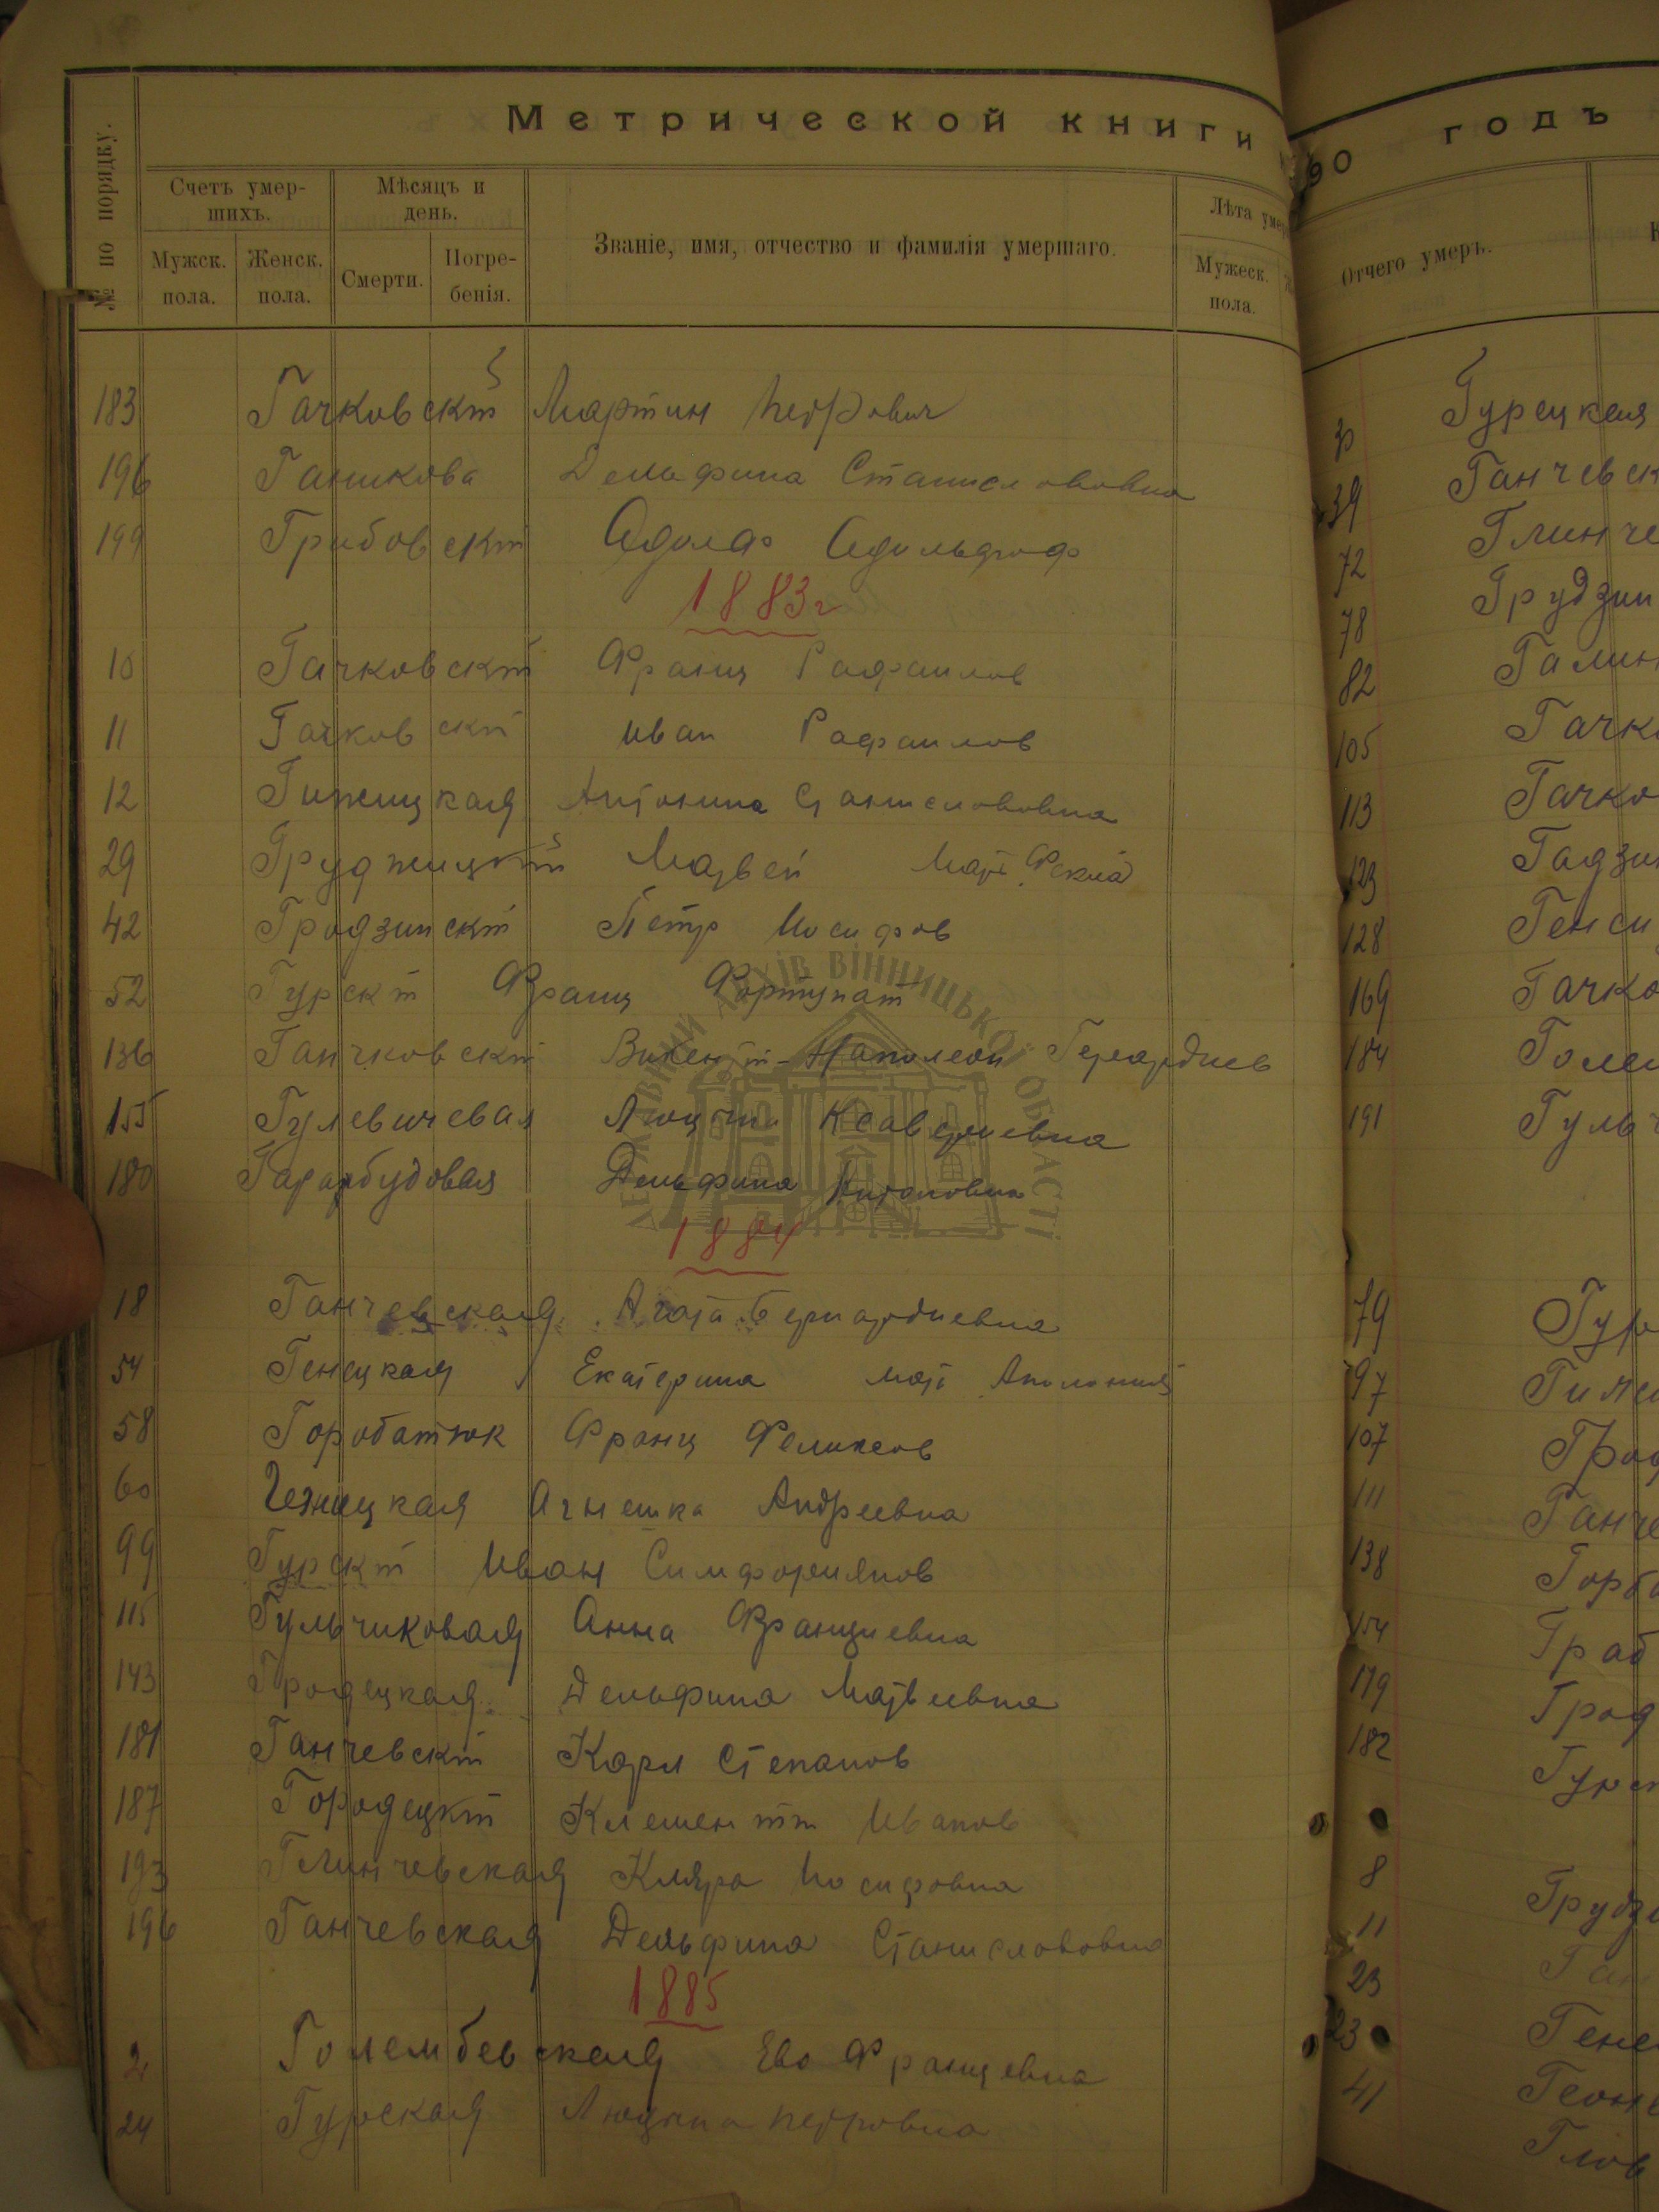 Метрической книги
№ по порядку.
Счетъ умер-
шихъ.
Мужск.
пола.
Женск.
пола.
Мѣсяцъ и
день.
Смерти.
Погре-
бенія.
Званіе, имя, отчество и фамилія умершаго.
Лѣта умер
Мужеск.
пола.
183 Гачковскій Мартин Петрович
196 Ганикова Дельфина Станиславовна
199 Грибовскій Адольф
1883г
10 Гачковскій Франц Рафаилов
11 Гачковскій Иван Рафаилов
12 Антонина Станиславовна
29 Матвей Мать Фекла
42 Гродзинскій Петр Иосифов
52 Гурскій Франц Фортунат
136 Ганчковскій Викентій-Наполеон
155 Гулевичевая Ксавериевна
180 Дельфина Антоновна
1884
18 Ганчевская Агата Бернардиевна
54 Генецкая Екатерина мать Аполония
58 Горобатюк Франц Феликсов
60 Агнешка Андреевна
99 Гурскій Иван Симфориянов
115 Гульчиковая Анна Францевна
143 Гродецкая Дельфина Матвеевна
181 Ганчевскій Карл Степанов
187 Городецкій Клементій Иванов
193 Глинчевская Кляра Иосифовна
196 Ганчевская Дельфина Станиславовна
1885
2 Голембевская Ева Францевна
24 Гурская Люцина Петровна
90 годъ
Отчего умеръ.
Гурецкая
39 Ганчевск
72 Глинче
78 Грудзин
82 Галин
105 Гачк
113 Гачко
123 Гадзи
128 Генси
169 Гачко
184 Голем
191 Гульч
79 Гур
97
107 Грод
111 Ганче
138 Горб
154 Граб
179 Грод
182 Гурс
8 Грудз
11 Ган
23 Гене
23
41
ДЕРЖАВНИЙ АРХІВ ВІННИЦЬКОЇ ОБЛАСТІ